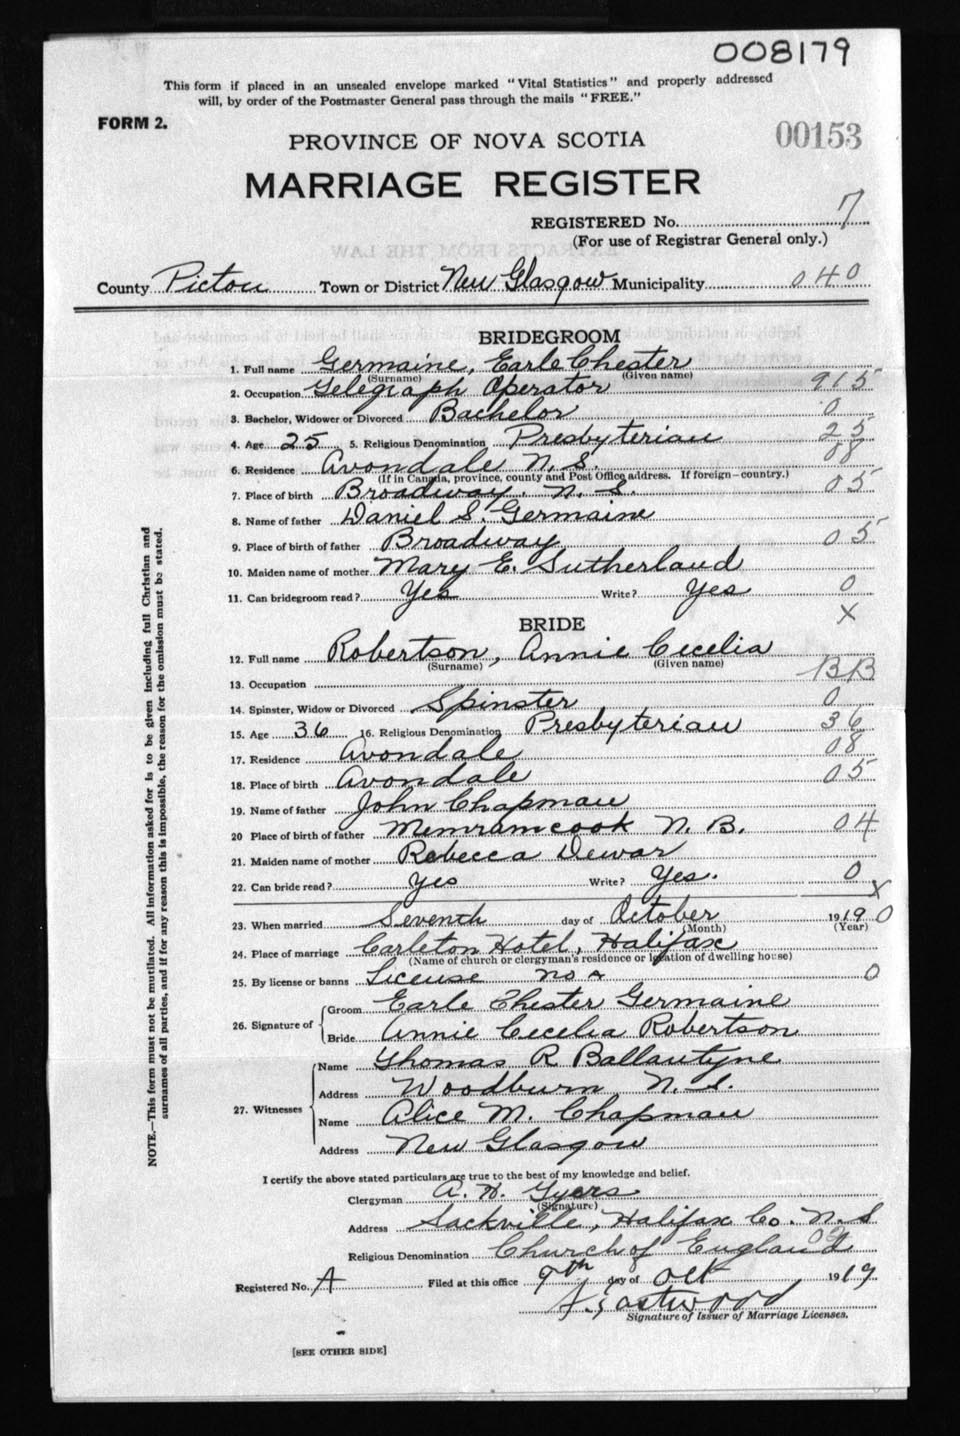 008179
This form if placed in an unsealed envelope marked "Vital Statistics" and properly addressed
will, by order of the Postmaster General pass through the mails "FREE."
FORM 2.
00153
PROVINCE OF NOVA SCOTIA
MARRIAGE REGISTER
REGISTERED No. 7
(For use of Registrar General only.)
County Pictou Town or District New Glasgow Municipality 040
BRIDEGROOM
1. Full name Germaine, Earle Chester
(Surname) (Given name)
2. Occupation Telegraph Operator 915
3. Bachelor, Widower or Divorced Bachelor 0
4. Age 25 5. Religious Denomination Presbyterian 25
6. Residence Avondale N.S. 08
(If in Canada, province, county and Post Office address. If foreign—country.)
7. Place of birth Broadway. N.S. 05
8. Name of father Daniel S. Germaine
9. Place of birth of father Broadway 05
10. Maiden name of mother Mary E. Sutherland
11. Can bridegroom read? Yes Write? Yes 0
X
BRIDE
12. Full name Robertson, Annie Cecelia
(Surname) (Given name)
13. Occupation
14. Spinster, Widow or Divorced Spinster 0
15. Age 36 16. Religious Denomination Presbyterian 36
17. Residence Avondale 08
18. Place of birth Avondale 05
19. Name of father John Chapman
20 Place of birth of father Memramcook N.B. 04
21. Maiden name of mother Rebecca Dewar
22. Can bride read? Yes Write? Yes. 0
X
23. When married Seventh day of October 1919 0
(Month) (Year)
24. Place of marriage Carleton Hotel, Halifax
(Name of church or clergyman's residence or location of dwelling house)
25. By license or banns License no 0
26. Signature of Groom Earle Chester Germaine
Bride Annie Cecelia Robertson
27. Witnesses Name Thomas R Ballantyne
Address Woodburn N.S.
Name Alice M. Chapman
Address New Glasgow
I certify the above stated particulars are true to the best of my knowledge and belief.
Clergyman A. H.
(Signature)
Address Sackville, Halifax Co. N.S
Religious Denomination Church of England
Registered No. A Filed at this office 9th day of Oct 1919
Eastwood
Signature of Issuer of Marriage Licenses.
[SEE OTHER SIDE]
NOTE.—This form must not be mutilated. All information asked for is to be given including full Christian and
surnames of all parties, and if for any reason this is impossible, the reason for the omission must be stated.